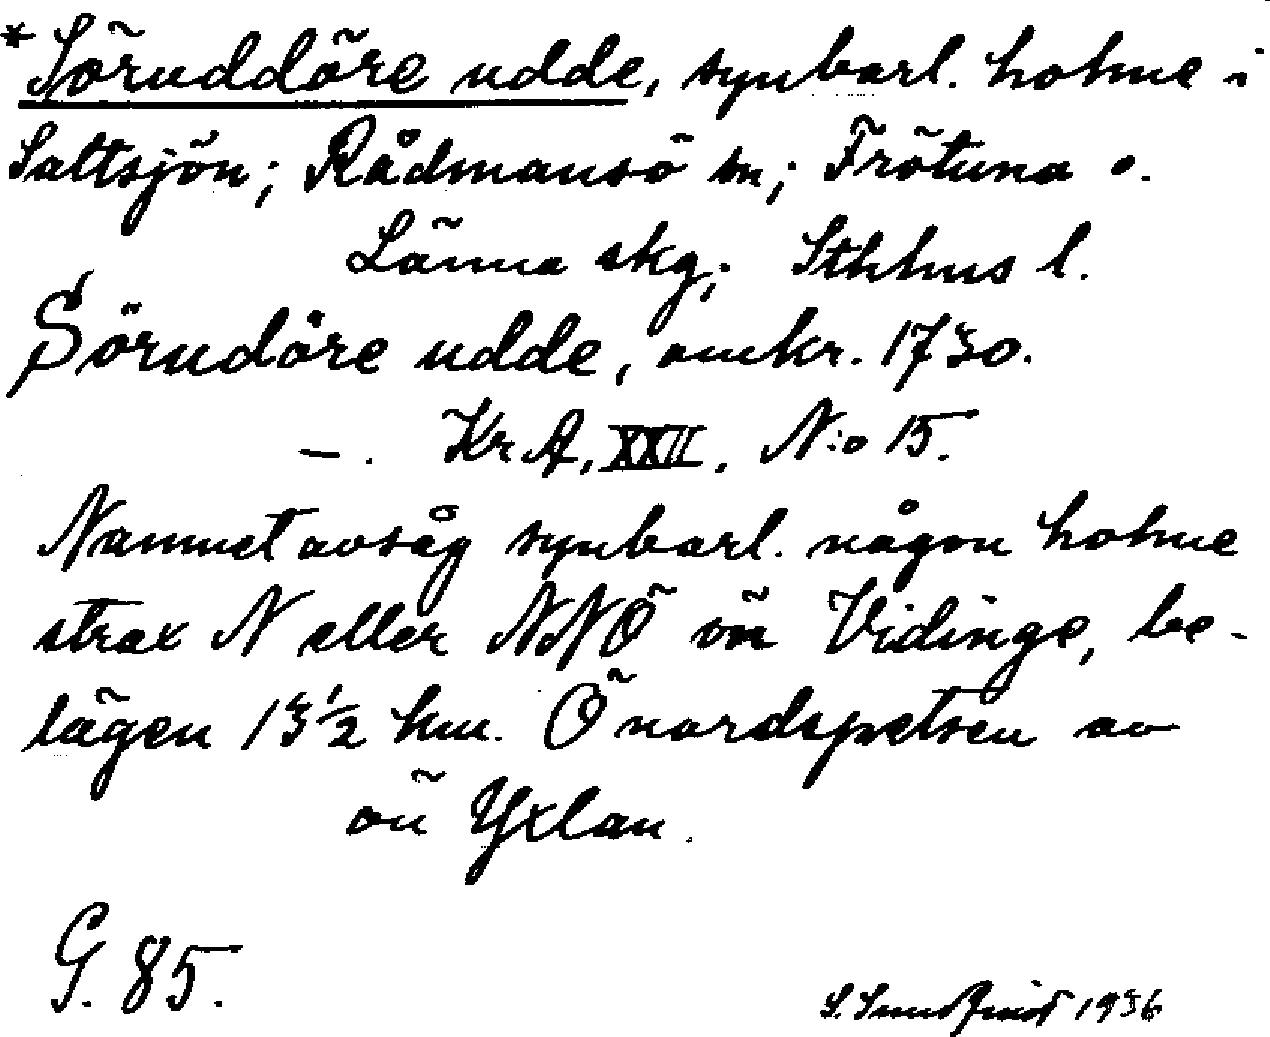 *Söruddöre udde, synbarl. holme i
Saltsjön; Rådmansö sn; Frötuna o.
Länna skg; Sthlms l.
Sörudöre udde, omkr. 1730.
— . KrA, XXII, N:o 15.
Namnet avsåg synbarl. någon holme
strax N eller NNÖ ön Vidinge, be-
lägen 13½ km. Ö nordspetsen av
ön Yxlan.
G. 85.
S. 1936